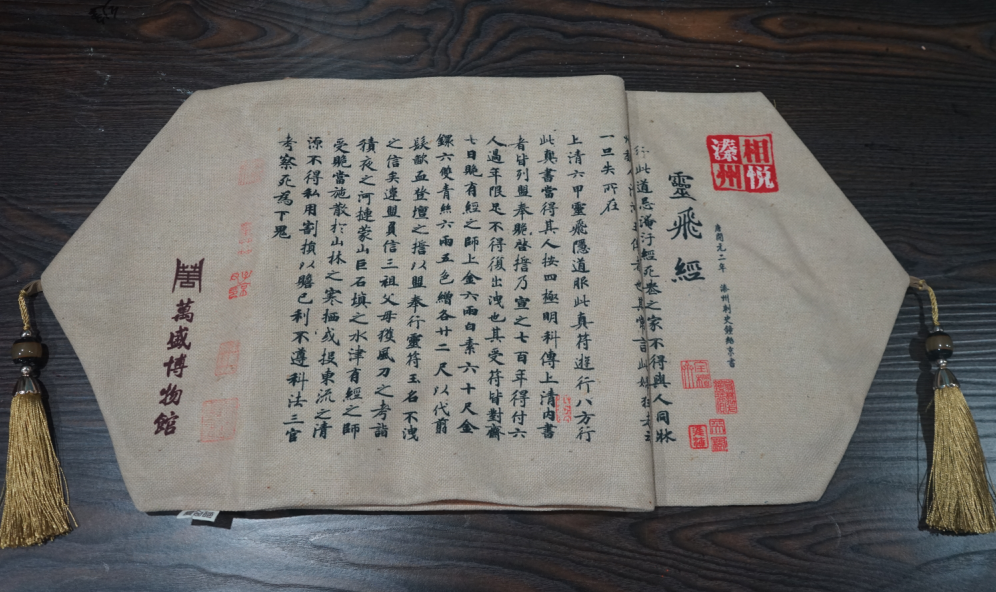 相悦
溱州
唐開元二年 溱州刺史鍾紹京書
靈飛經
行此道忌淹汙經死喪之家不得與人同牀
一旦失所在
上清六甲靈飛隱道服此真符遊行八方行
此真書當得其人按四極明科傳上清内書
者皆列盟奉跪啓誓乃宣之七百年得付六
人過年限足不得復出洩也其受符皆對齋
七日跪有經之師上金六兩白素六十尺金
鐶六雙青絲六兩五色繒各廿二尺以代翦
髮歃血登壇之誓以盟奉行靈符玉名不洩
之信矣違盟負信三祖父母獲風刀之考詣
積夜之河揵蒙山巨石填之水津有經之師
受跪當施散於山林之寒栖或投東流之清
源不得私用割損以贍已利不遵科法三官
考察死為下鬼
萬盛博物館